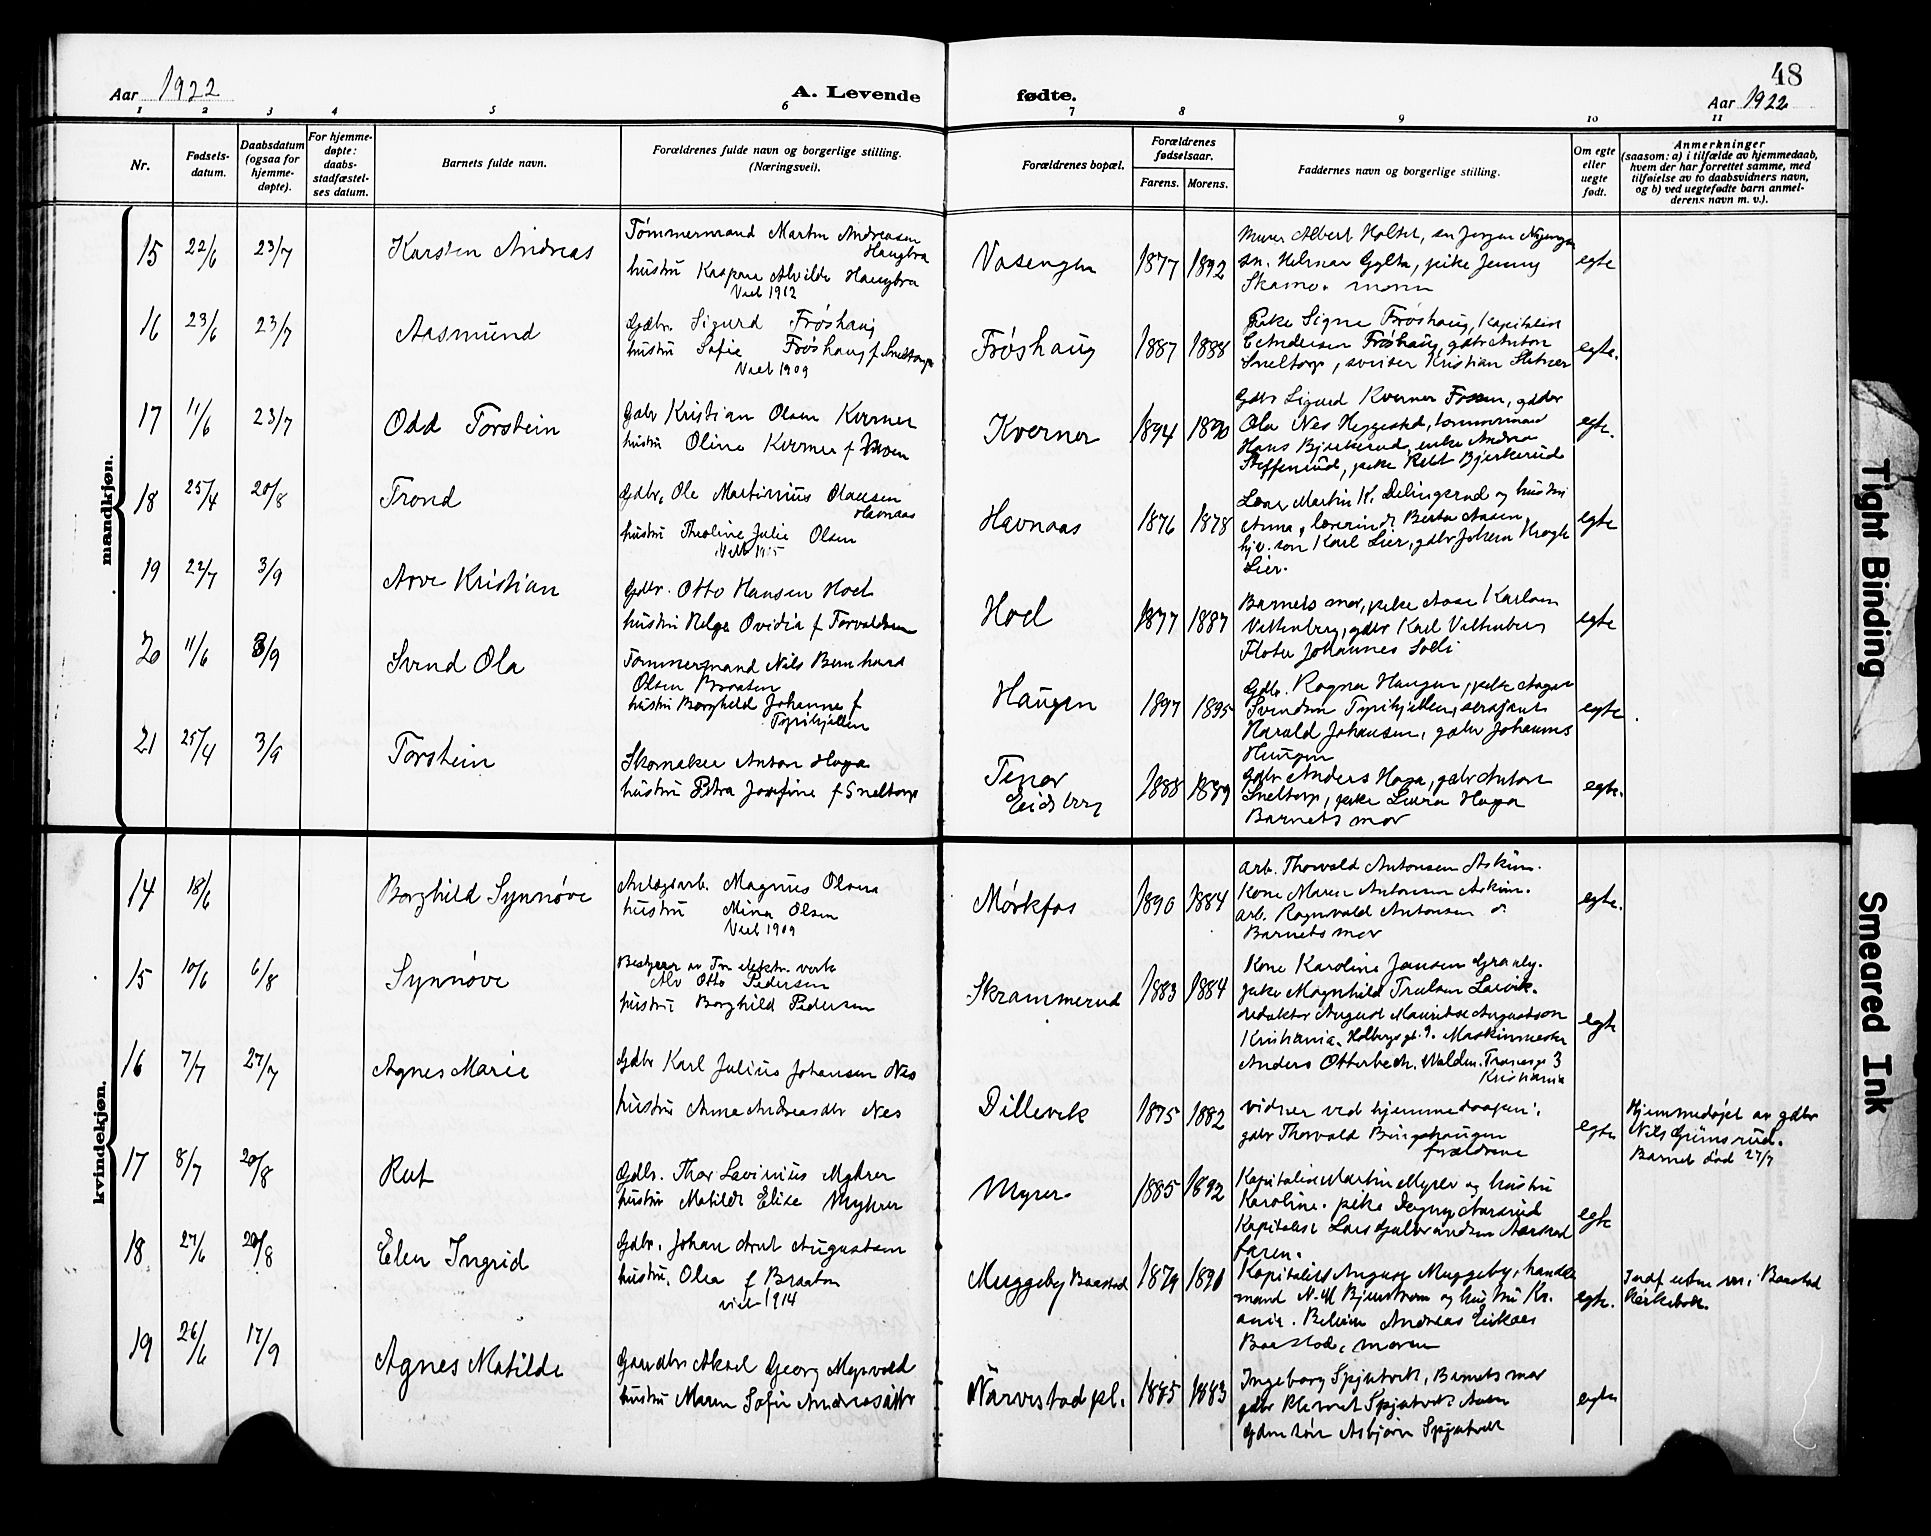 48
Aar 1922
A. Levende fødte.
Aar 1922
1 2 3 4 5 6 7 8 9 10 11
Nr.
Fødsels-
datum.
Daabsdatum
(ogsaa for
hjemme-
døpte).
For hjemme-
døpte:
daabs-
stadfæstel-
ses datum.
Barnets fulde navn.
Forældrenes fulde navn og borgerlige stilling.
(Næringsvei).
Forældrenes bopæl.
Forældrenes
fødselsaar.
Farens. Morens.
Faddernes navn og borgerlige stilling.
Om egte
eller
uegte
født.
Anmerkninger
(saasom: a) i tilfælde av hjemmedaab,
hvem der har forrettet samme, med
tilføielse av to daabsvidners navn,
og b) ved uegtefødte barn anmel-
derens navn m. v.).
mandkjøn.
15 22/6 23/7 Karsten Andreas
Tømmermand Martin Andreassen
Haugbra
hustru Kaspara Alvilde Haugbra
Viet 1912
Vasengen 1877 1892
Murer Albert Holter
Hilmar pike Jenny
egte
16 23/6 23/7 Aasmund
Gdbr. Sigurd Frøshaug
hustru Sofie Frøshaug f. Sneltorp
Viet 1909
Frøshaug 1887 1888
Pike Signe Frøshaug, Kapitalist
Frøshaug, gdbr Anton
Sneltorp, Kristian
egte.
17 11/6 23/7 Odd Torstein
Gdbr Kristian Olsen Kverner
hustru Oline Kverner f Moen
Kverner 1894 1890
Gdbr Sigurd Kverner gdbr
Ola Nes Heggestad, tømmermand
Hans Bjerkerud, Andrea
Steffenrud, pike Bjerkerud
egte.
18 25/4 20/8 Trond
Gdbr. Ole Martinius Olausen
Havnaas
hustru Theoline Julie Olsen
Havnaas 1876 1878
Martin K. Delingsrud og hustru
Anna, lærerinde Berta Aasen,
søn Karl Lier, gdbr Johan
Lier.
egte
19 22/7 3/9 Arve Kristian
Gdbr. Otto Hansen Hoel
hustru Helga Ovidia f Torvaldsen
Hoel 1877 1887
Barnets mor, pike Aase Karlsen
Vettenberg, gdbr Karl Vettenberg
Johannes
egte
20 11/6 3/9 Svend Ola
Tømmermand Nils Bernhard
Olsen Braaten
hustru Borghild Johanne f
Tyrihjellen
Haugen 1897 1895
Gdbr. Ragna Haugen, pike Aagot
Svendsen Tyrihjellen, sersjant
Harald Johansen, gdbr Johannes
Haugen
egte
21 25/4 3/9 Torstein
Skomaker Anton Haga
hustru Petra Josefine f Sneltorp
Tenor
Eidsberg 1888 1889
Gdbr Anders Haga, gdbr Anton
Sneltorp, pike Laura Haga
Barnets mor
egte.
kvindekjøn.
14 18/6 Borghild Synnøve
Anlægsarb. Magnus Olsen
hustru Mina Olsen
Viet 1909
Mørkfos 1890 1884
Arb. Thorvald Antonsen Askim.
Kone Maren Antonsen Askim.
arb. Ragnvald Antonsen
Barnets mor
egte.
15 10/6 6/8 Synnøve
Bestyrer av elektr. verk
Alv Otto Pedersen
hustru Borghild Pedersen
Skrammerud 1883 1884
Kone Karoline Jansen
pike Magnhild Trulsen Larvik.
redaktør August Mauritz Augustson
Kristiania, Holbergs gt. 9. Maskinmester
Anders Otterbech,
Kristiania
egte
16 7/7 27/7 Agnes Marie
Gdbr Karl Julius Johansen Nes
hustru Anna Andreasdtr Nes
Dillevik 1875 1882
vidner ved hjemmedaapen:
gdbr Thorvald Bingshaugen
forældrene
egte
Hjemmedøpt av gdbr
Nils Grimsrud.
Barnet død 27/7
17 8/7 20/8 Rut
Gdbr. Thor Lavinius Myhrer
hustru Matilde Elise Myhrer
Myrer 1885 1892
Kapitalist Martin Myrer og hustru
Karoline. pike Dagny Aarsrud
Kapitalist Lars Gulbrandsen
faren.
egte
18 27/6 20/8 Elen Ingrid
Gdbr. Johan Arnt Augustsen
hustru, Olea f Braaten
viet 1914
Muggeby Baastad 1879 1890
Kapitalist August Muggeby, handels
mand N. M Bjurstrøm og hustru
Andreas
Baastad, moren
egte.
Indf uten nr. i Baastad
kirkebok.
19 26/6 17/9 Agnes Matilde
Gaardbr Aksel Georg Mysvold
hustru Maren Sofie Andreasdtr
Narvestad pl. 1885 1883
Ingeborg Spjutvik, Barnets mor
gdbr Klemet Spjutvik
søn Asbjørn Spjutvik
egte
Tight Binding
Smeared Ink